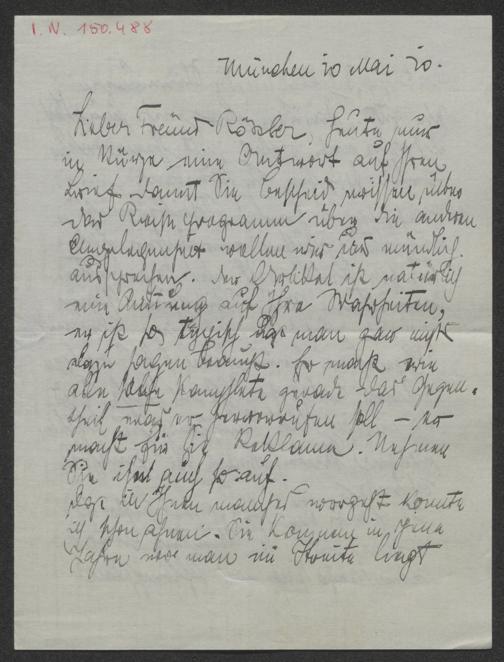 I.N. 150.488
München 20 Mai 20.
Lieber Freund Rössler, heute nur
in Kürze eine Antwort auf Ihren
Brief damit Sie bescheid wissen über
das Reiseprogramm über die anderen
Angelegenheit wollen wir uns mündlich
aussprechen. Der ist natürlich
eine auf Ihre Wahrheiten,
er ist so typisch das man gar nichts
dazu sagen braucht. Er macht wie
alle Pamphlete gerade das Gegen-
theil was er hervorrufen soll – er
macht für Sie Reklame. Nehmen
Sie ihn auch so auf.
Das in Ihnen manches vorgeht konnte
ich schon ahnen. Sie kommen in jene
Jahre wo man im Streite liegt